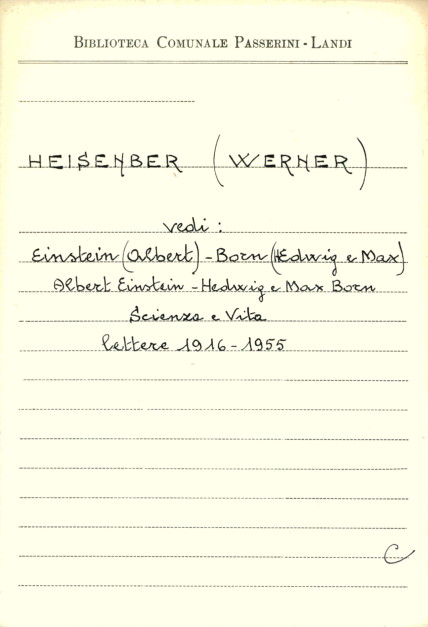 BIBLIOTECA COMUNALE PASSERINI - LANDI
HEISENBER (WERNER)
vedi :
Einstein (Albert) - Born (HEdwig e Max)
Albert Einstein - Hedwig e Max Born
Scienza e Vita
lettere 1916 - 1955
C